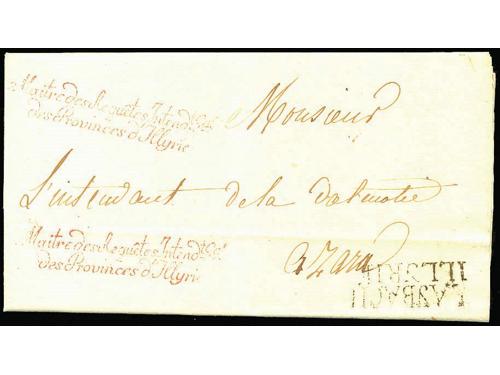 Maître des Requêtes Intend.t G.al
des Provinces d'Illyrie
Monsieur
L'intendant de la Dalmatie
Maître des Requêtes Intend.t G.al
des Provinces d'Illyrie
a Zara
LAYBACH
ILLYRIE